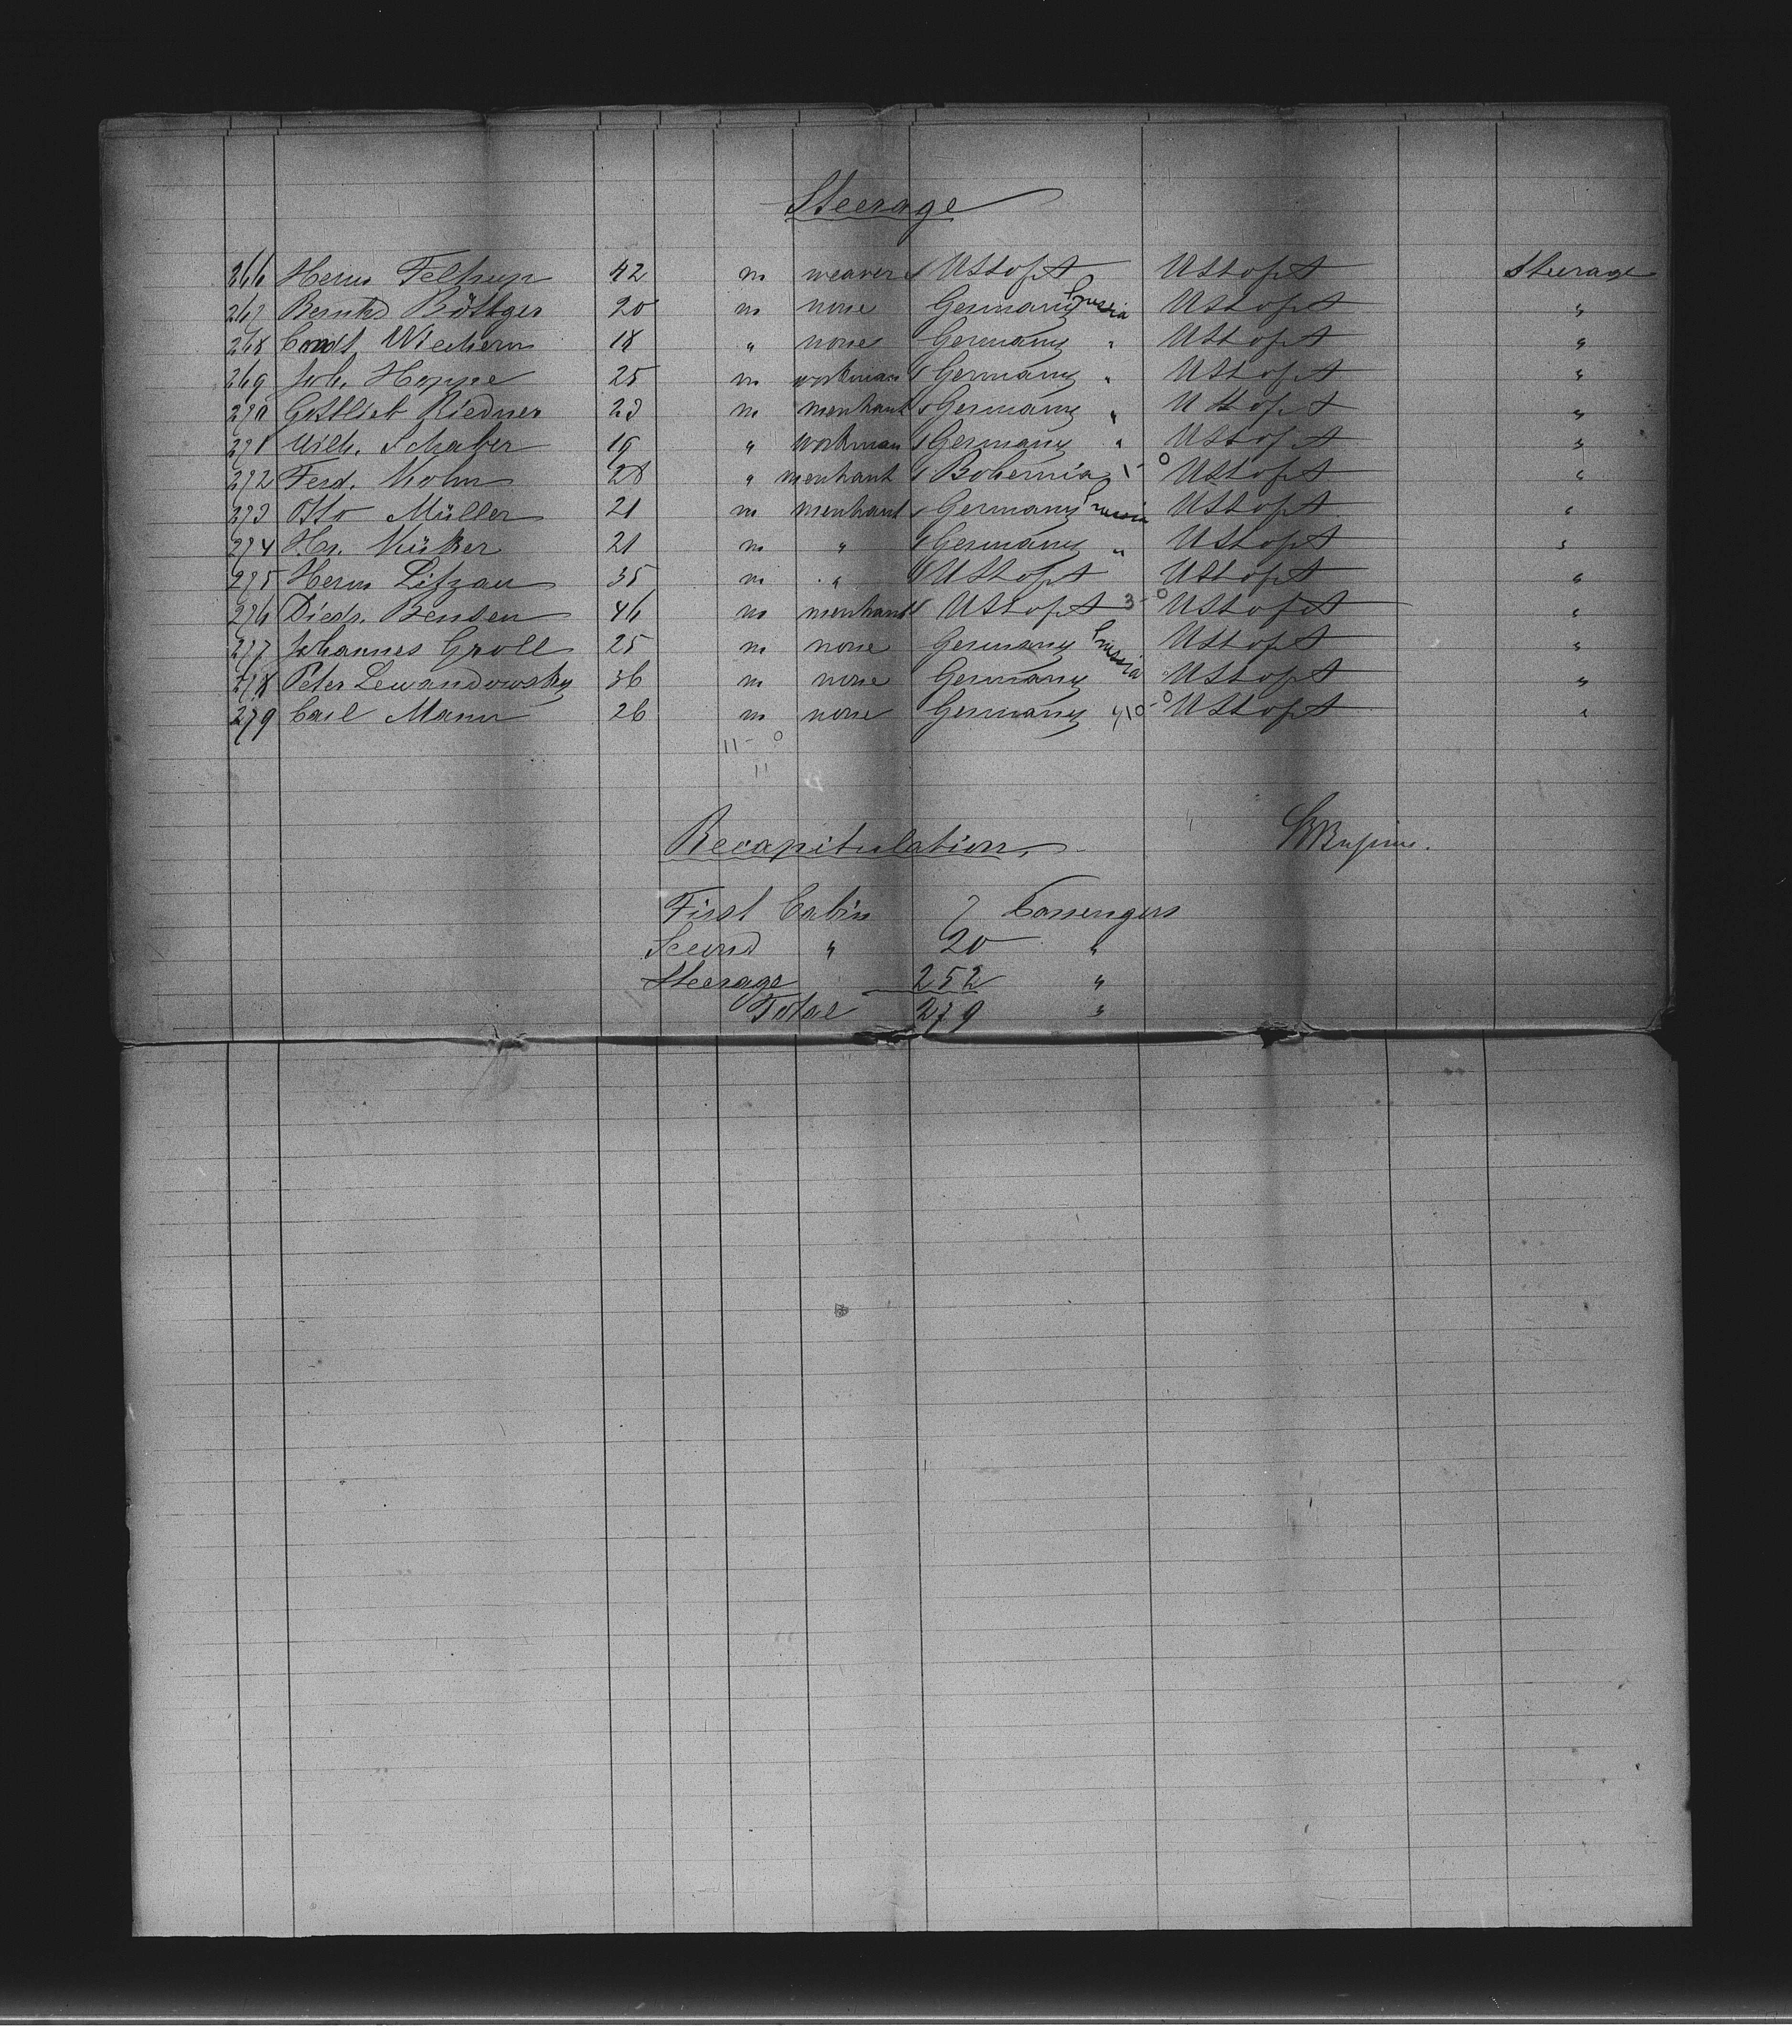 Steerage
266 Herm Feltrup 42 m weaver UStofA UStofA Steerage
267 Bernhd Böttger 20 m none Germany Prussia UStofA "
268 Wichern 18 " none Germany " UStofA "
269 Joh. Hoppe 25 m workman Germany " UStofA "
270 Gottlieb Riedner 23 m merchant Germany " UStofA "
271 Wilh. Schaber 19 " workman Germany " UStofA "
272 Ferd. 28 " merchant Bohemia 1-0 UStofA "
273 Otto Müller 21 m merchant Germany Prussia UStofA "
274 Hr. 21 m " Germany " UStofA "
275 Herm Litzau 35 m " UStofA UStofA "
276 Diedr. Bensen 46 m merchant UStofA 3-0 UStofA "
277 Johannes Groll 25 m none Germany Prussia UStofA "
278 Peter Lewandowsky 36 m none Germany UStofA "
279 Carl Mann 26 m none Germany " 10-0 UStofA "
11-0
11
Recapitulation.
First Cabin 7 Passengers
Second " 20 "
Steerage 252 "
Total 279 "